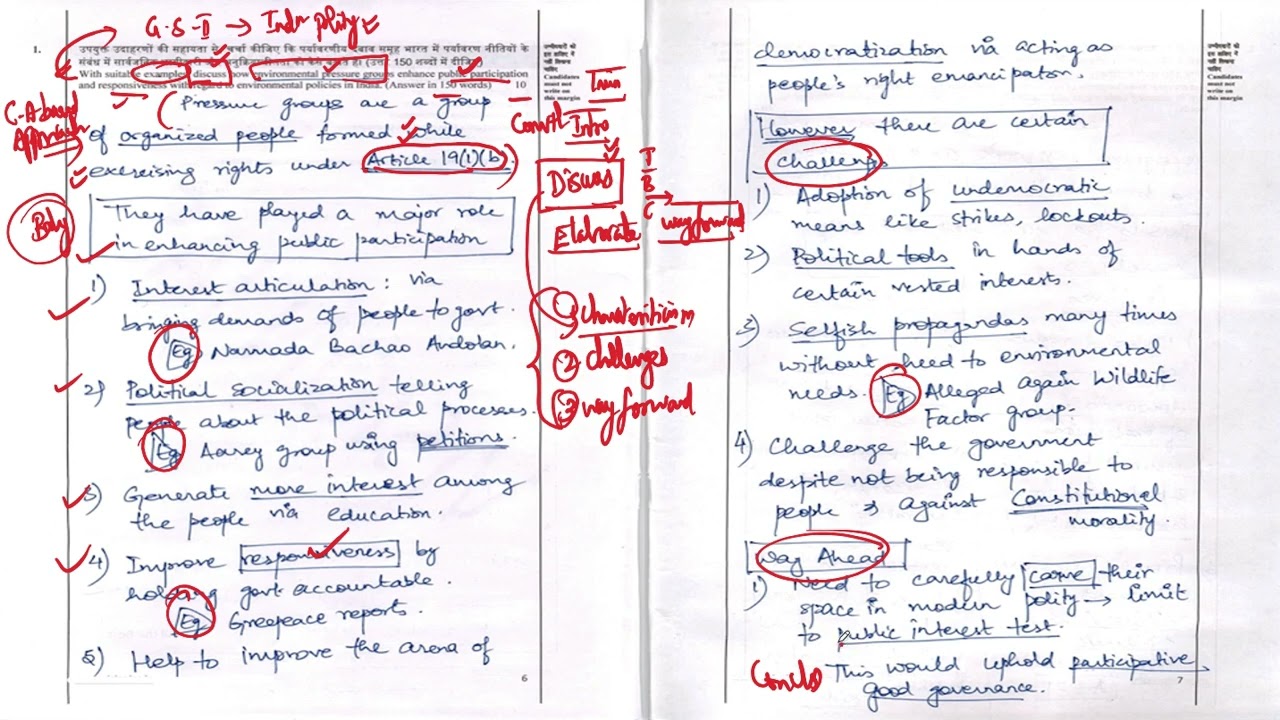 G.S-II → Indn polity
1.
उपयुक्त उदाहरणों की सहायता से चर्चा कीजिए कि पर्यावरणीय दबाव समूह भारत में पर्यावरण नीतियों के
संबंध में सार्वजनिक
150 शब्दों में दीजिए
With suitable examples, discuss how environmental pressure groups enhance public participation
and responsiveness with regard to environmental policies in India. (Answer in 150 words) 10
उम्मीदवार को
इस हाशिये में
नहीं लिखना
चाहिए
Candidates
must not
write on
this margin
C-A based
Approach
Pressure groups are a group
of organized people formed while
exercising rights under Article 19(1)(b).
Body
They have played a major role
in enhancing public participation
1) Interest articulation : via
bringing demands of people to govt.
Eg Narmada Bachao Andolan.
2) Political socialization telling
people about the political processes.
Eg Aarey group using petitions.
3) Generate more interest among
the people via education.
4) Improve responsiveness by
holding govt accountable.
Eg Greepeace reports.
5) Help to improve the arena of
6
Intro
Discuss
I
B
C
Elaborate
way forward
1
2 challenges
3 way forward
democratization via acting as
people's right emancipaton.
However there are certain
challenges
1) Adoption of undemocratic
means like strikes, lockouts.
2) Political tools in hands of
certain vested interests.
3) Selfish propagandas many times
without heed to environmental
needs. Eg Alleged again Wildlife
Factor group.
4) Challenge the government
despite not being responsible to
people → against Constitutional
morality.
Way Ahead
1) Need to carefully carve their
space in modern polity → limit
to public interest test.
Conclso This would uphold participative,
good governance.
7
उम्मीदवार को
इस हाशिये में
नहीं लिखना
चाहिए
Candidates
must not
write on
this margin